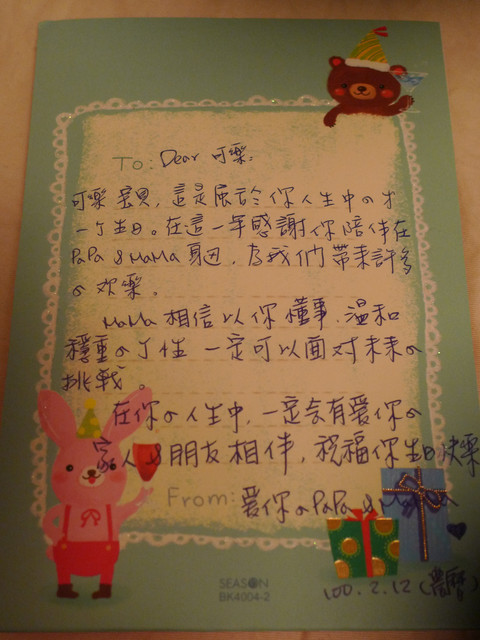 To: Dear 可樂:
可樂寶貝,這是屬於你人生中の才
一ㄎ生日。在這一年感謝你陪伴在
PaPa & MaMa 身邊,為我們帶來許多
の欢樂。
MaMa 相信以你懂事、溫和
穩重の个性 一定可以面对未來の
挑戰。
在你の人生中,一定会有爱你の
家人&朋友相伴,祝福你生日快樂
From: 爱你の PaPa &
100.2.12 (農曆)
SEASON
BK4004-2